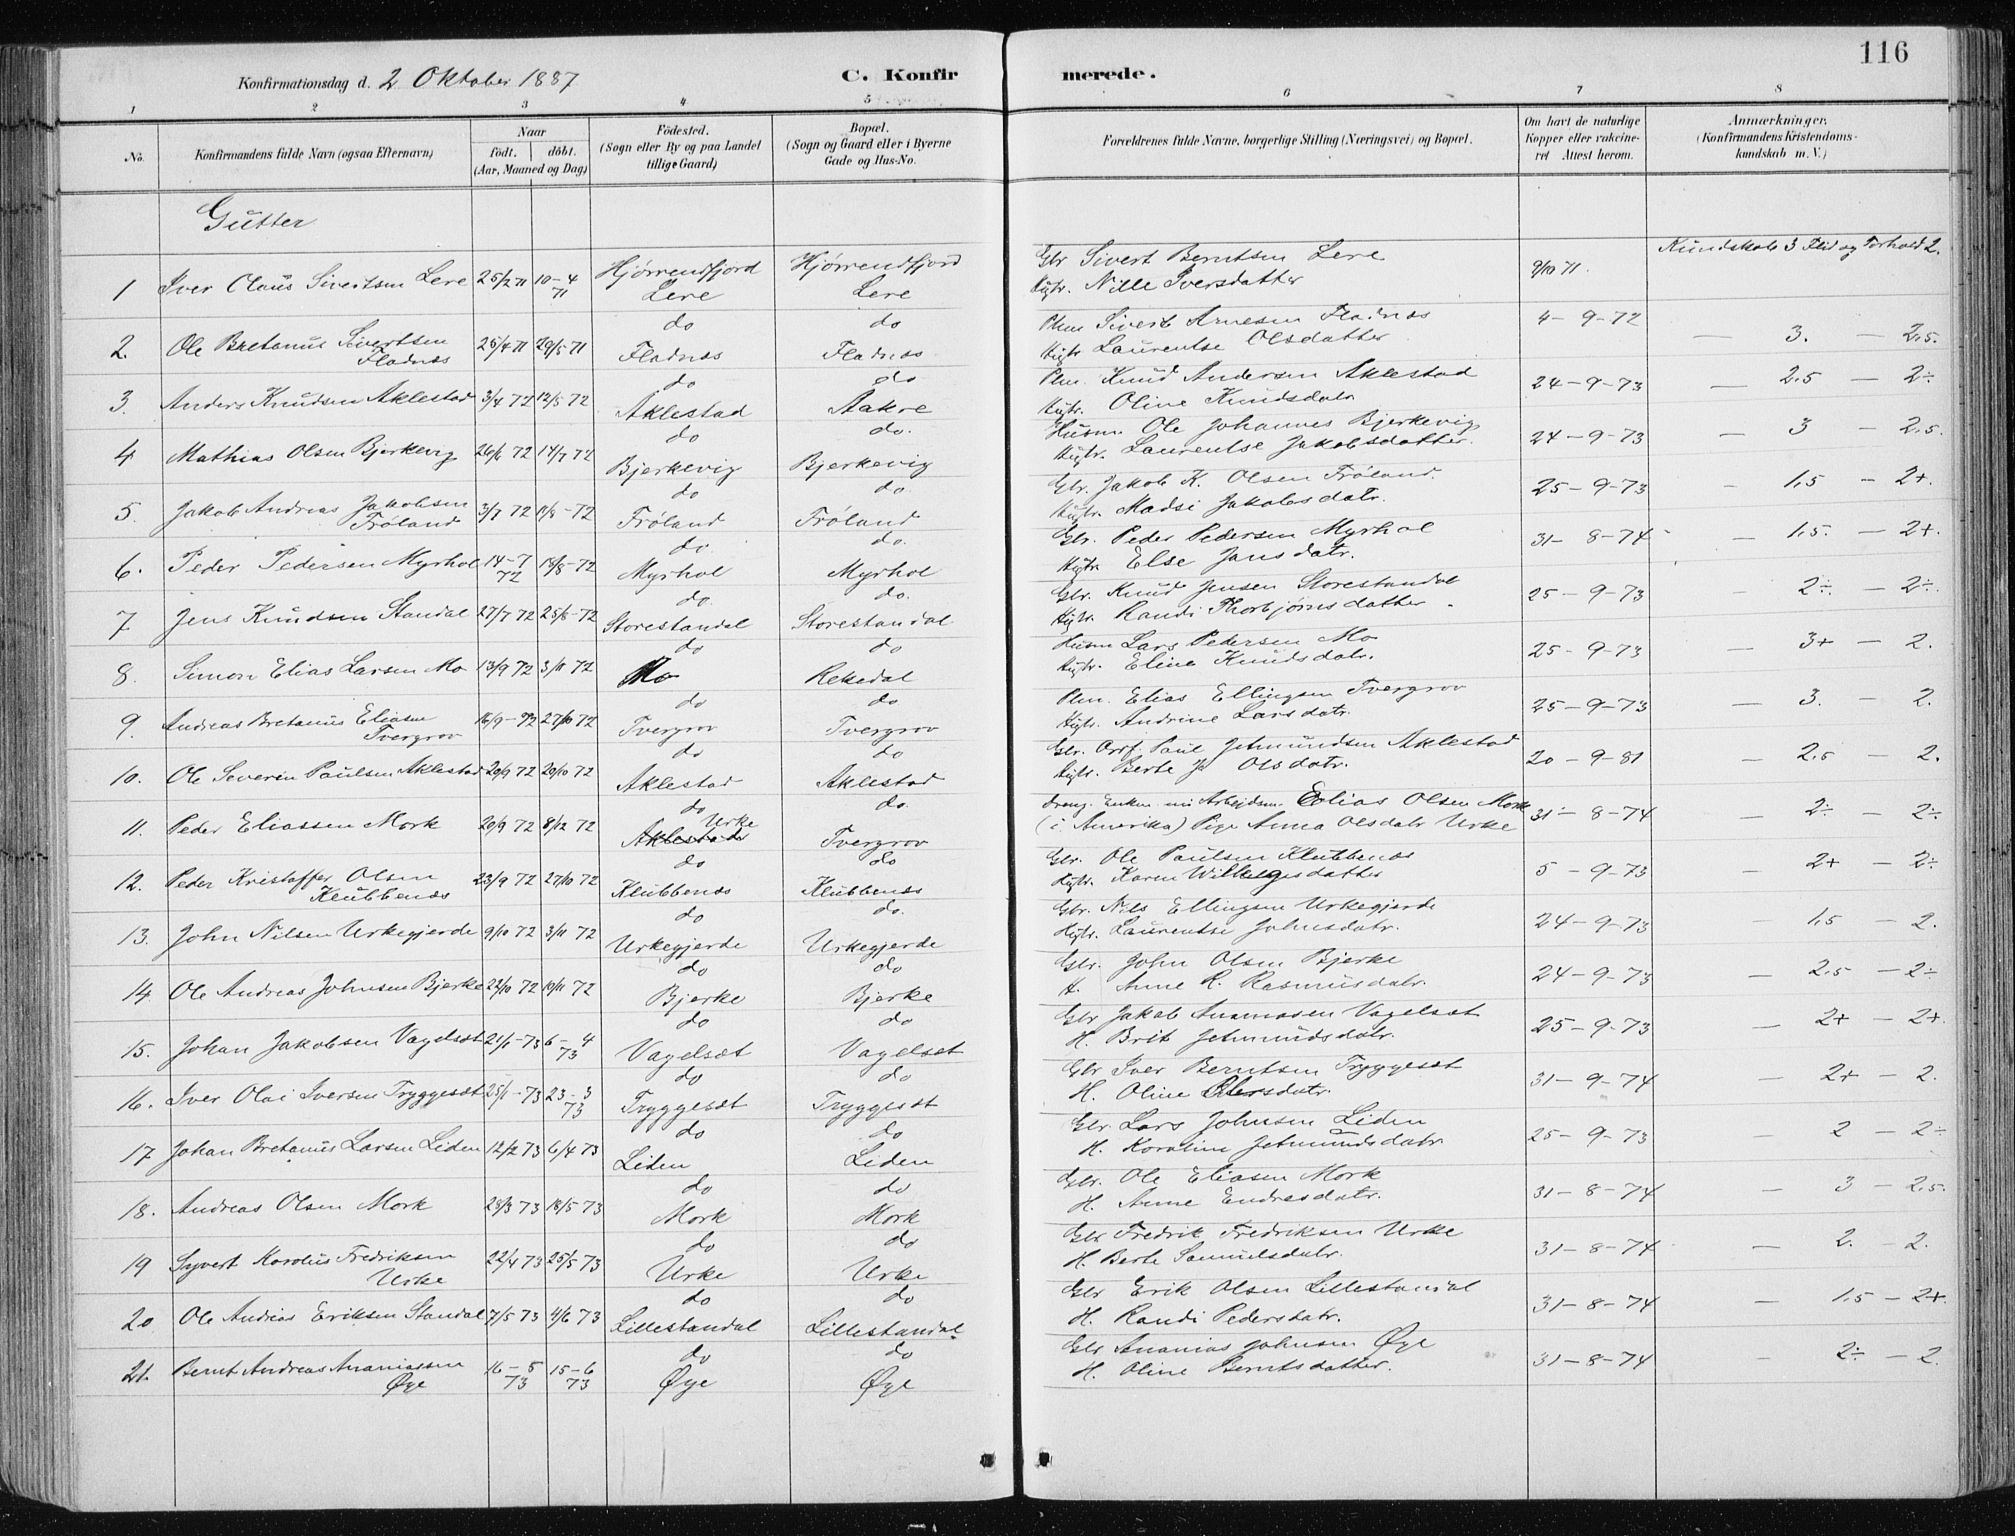 116
Konfirmationsdag d. 2 Oktober 1887
C. Konfirmerede.
1 2 3 4 5 6 7 8
No.
Konfirmandens fulde Navn (ogsaa Efternavn)
Naar
födt. döbt.
(Aar, Maaned og Dag)
Födested.
(Sogn eller By og paa Landet tillige Gaard)
Bopæl.
(Sogn og Gaard eller i Byerne Gade og Hus-No.
Forældrenes fulde Navne, borgerlige Stilling (Næringsvei) og Bopæl.
Om havt de naturlige Kopper eller vakcineret Attest herom.
Anmærkninger.
(Konfirmandens Kristendomskundskab m. V.)
Gutter
1 Iver Olaus Sivertsen Lere 25/2 71 10-4 71 Hjörrendfjord Lere Hjörrendfjord Lere Gbr Sivert Berntsen Lere Hgtr. Nille Iversdatter 9/10 71. Kundskab 3 Flid og Forhold 2.
2. Ole Bretanus Sivertsen Fladnæs 25/4 71 29/5 71 do Fladnæs do Fladnæs Plm Sivert Arnesen Fladnæs Hgtr Laurentse Olsdatter 4-9-72 — 3. — 2,5.
3. Anders Knudsen Aklestad 3/4 72 12/5 72 do Aklestad do Aakre Plm. Knud Andersen Aklestad Hgtr. Oline Knudsdatr 24-9-73 — 2,5 — 2÷
4 Mathias Olsen Bjerkevig 26/6 72 14/7 72 do Bjerkevig do. Bjerkevig Husm. Ole Johannes Bjerkevig Hgtr. Laurentse Jakobsdatter. 24-9-73 — 3 — 2,5.
5. Jakob Andreas Jakobsen Fröland 3/7 72 11/8-72 do Fröland do. Fröland Gbr. Jakob K. Olsen Fröland. Hgtr. Madsi Jakobsdatr. 25-9-73 — 1,5 — 2+.
6. Peder Pedersen Myrhol 14-7 72 18/8-72 do. Myrhol do. Myrhol Gbr. Peder Pedersen Myrhol Hgtr Else Jansdatr. 31-8-74 — 1,5. — 2+.
7 Jens Knudsen Standal 27/7 72 25/8-72 do. Storestandal do. Storestandal Gbr. Knud Jensen Storestandal Hgtr. Randi Thorbjörnsdatter. 25-9-73 — 2÷ — 2÷
8. Simon Elias Larsen Mo 13/9 72 3/11 72 do Mo do Rekedal Husm Lars Pedersen Mo Hgtr. Eline Knudsdatr. 25-9-73 — 3+ — 2.
9. Andreas Bretanus Eliasen Tvergrov 16/9-72 27/10 72 do Tvergrov do Tvergrov Plm. Elias Ellingsen Tvergrov Hgtr. Andrine Larsdatr. 25-9-73 — 3. — 2.
10. Ole Severin Paulsen Aklestad 20/9 72 20/10 72 do Aklestad do Aklestad Gbr. Paul Jetmundsen Aklestad Hgtr. Berte Olsdatr. 20-9-81 — 2,5 — 2.
11. Peder Eliassen Mork 20/9 72 8/12 72 do Urke Aklestad do. Tvergrov Elias Olsen Mork (i Amerika) Pige Anna Olsdatr Urke 31-8-74 — 2÷ — 2÷
12. Peder Kristoffer Olsen Klubbenæs 23/9 72 27/10 72 do Klubbenæs do Klubbenæs Gbr. Ole Paulsen Klubbenæs Hgtr. Karen Willugsdatter 5-9-73 — 2+ — 2÷
13. John Nilsen Urkegjerde 9/10 72 3/11 72 do Urkegjerde do. Urkegjerde Gbr. Nils Ellingsen Urkegjerde Hgtr. Laurentse Johnsdatr. 24-9-73 — 1,5 — 2.
14. Ole Andreas Johnsen Bjerke 22/10 72 10/11 72 do Bjerke do Bjerke Gbr. John Olsen Bjerke H. Anne R. Rasmusdatr. 24-9-73 — 2,5 — 2÷
15. Johan Jakobsen Vagelsæt 21/1-73 6-4 73 do Vagelsæt do Vagelsæt Gbr Jakob Vagelsæt H. Brit Jetmundsdatr. 25-9-73 — 2+ — 2+.
16. Iver Olai Iversen Tryggesæt 25/1-73 23-3 73 do Tryggesæt do Tryggesæt Gbr Iver Berntsen Tryggesæt H. Oline 31-9-74 — 2+ — 2.
17 Johan Bretanus Larsen Liden 12/2 73 6/4 73 do Liden do Liden Gbr. Lars Johnsen Liden H. Karoline Jetmundsdatr. 25-9-73 — 2 — 2÷
18. Andreas Olsen Mork 23/3 73 18/5 73 do Mork do Mork Gbr. Ole Eliasen Mork H. Anne Endresdatr. 31-8-74 — 3 — 2,5.
19 Syvert Karolus Fredriksen Urke 22/4 73 25/5 73 do Urke do Urke Gbr Fredrik Fredriksen Urke H. Berte Samuelsdatr. 31-8-74 — 2. — 2.
20 Ole Andreas Eriksen Standal 7/5 73 4/6 73 do Lillestandal do Lillestandal Gbr Erik Olsen Lillestandal H. Randi Pedersdatr. 31-8-74 — 1,5 — 2+.
21. Bernt Andreas Ananiassen Øye 16-5 73 15-6 73 do Øye do Øye Gbr Ananias Johnsen Øye H. Oline Berntsdatter. 31-8-74 — 2÷ — 2.